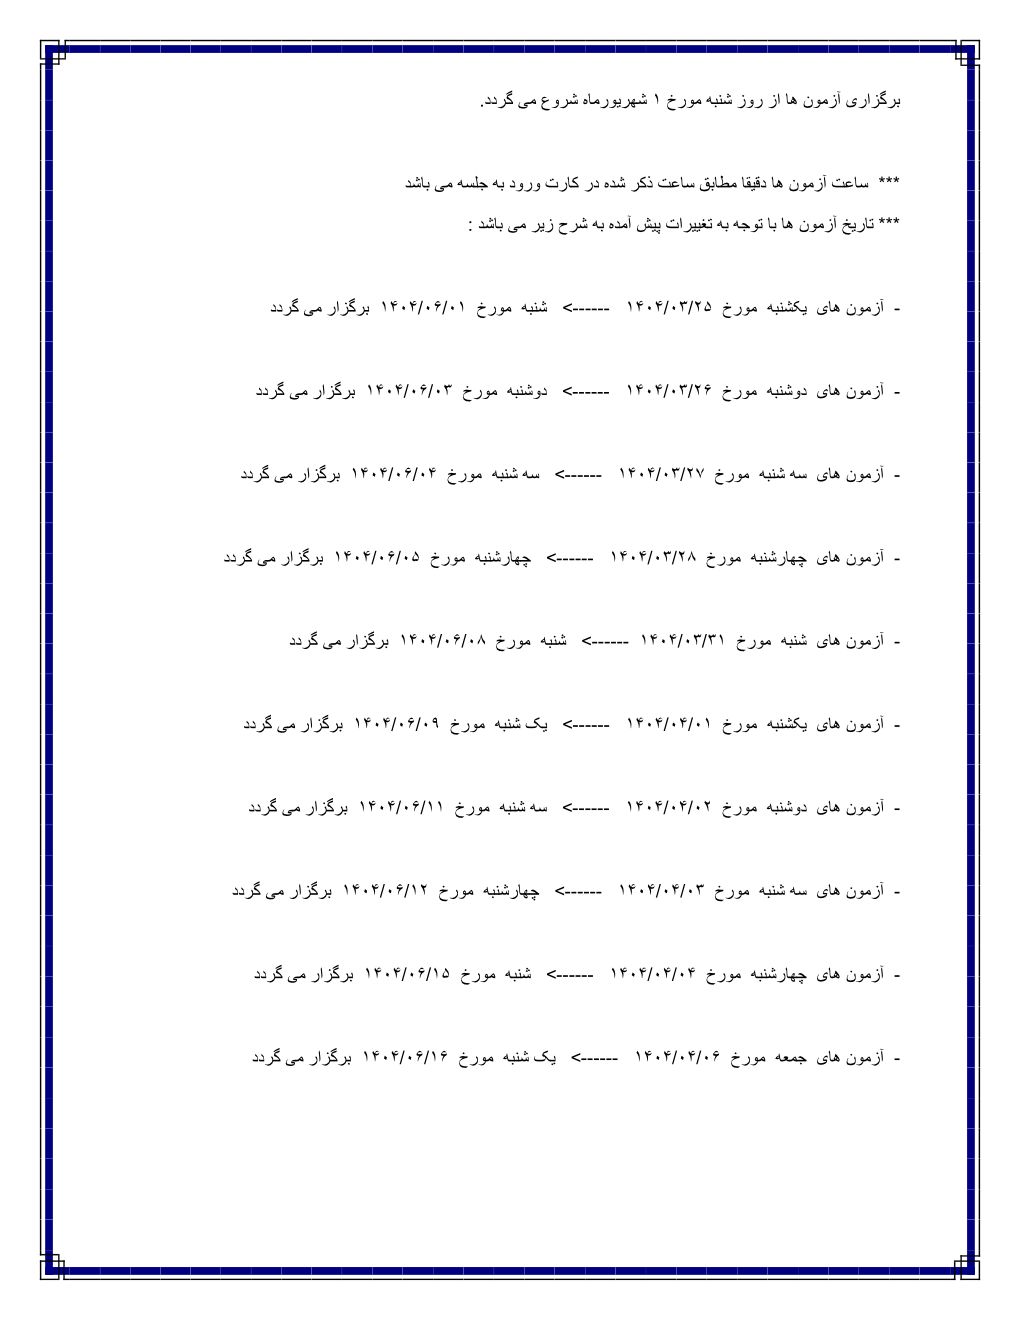 برگزاری آزمون ها از روز شنبه مورخ ۱ شهریورماه شروع می گردد.
*** ساعت آزمون ها دقیقا مطابق ساعت ذکر شده در کارت ورود به جلسه می باشد
*** تاریخ آزمون ها با توجه به تغییرات پیش آمده به شرح زیر می باشد :
- آزمون های یکشنبه مورخ ۱۴۰۴/۰۳/۲۵ ------> شنبه مورخ ۱۴۰۴/۰۶/۰۱ برگزار می گردد
- آزمون های دوشنبه مورخ ۱۴۰۴/۰۳/۲۶ ------> دوشنبه مورخ ۱۴۰۴/۰۶/۰۳ برگزار می گردد
- آزمون های سه شنبه مورخ ۱۴۰۴/۰۳/۲۷ ------> سه شنبه مورخ ۱۴۰۴/۰۶/۰۴ برگزار می گردد
- آزمون های چهارشنبه مورخ ۱۴۰۴/۰۳/۲۸ ------> چهارشنبه مورخ ۱۴۰۴/۰۶/۰۵ برگزار می گردد
- آزمون های شنبه مورخ ۱۴۰۴/۰۳/۳۱ ------> شنبه مورخ ۱۴۰۴/۰۶/۰۸ برگزار می گردد
- آزمون های یکشنبه مورخ ۱۴۰۴/۰۴/۰۱ ------> یک شنبه مورخ ۱۴۰۴/۰۶/۰۹ برگزار می گردد
- آزمون های دوشنبه مورخ ۱۴۰۴/۰۴/۰۲ ------> سه شنبه مورخ ۱۴۰۴/۰۶/۱۱ برگزار می گردد
- آزمون های سه شنبه مورخ ۱۴۰۴/۰۴/۰۳ ------> چهارشنبه مورخ ۱۴۰۴/۰۶/۱۲ برگزار می گردد
- آزمون های چهارشنبه مورخ ۱۴۰۴/۰۴/۰۴ ------> شنبه مورخ ۱۴۰۴/۰۶/۱۵ برگزار می گردد
- آزمون های جمعه مورخ ۱۴۰۴/۰۴/۰۶ ------> یک شنبه مورخ ۱۴۰۴/۰۶/۱۶ برگزار می گردد